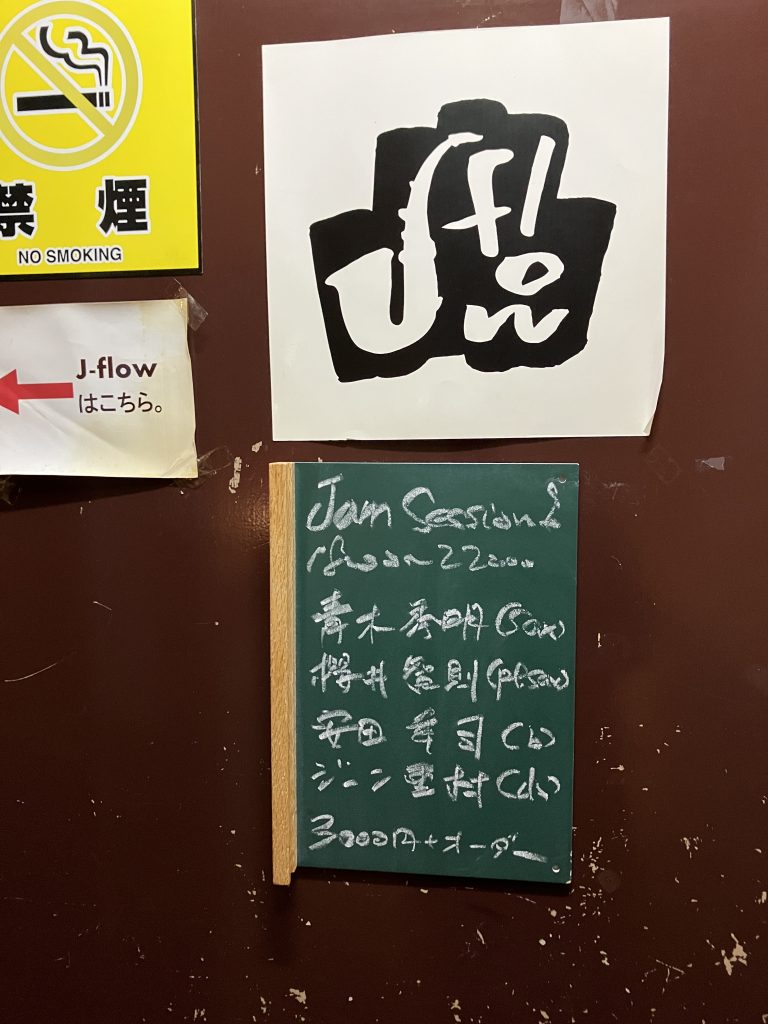 禁煙
NO SMOKING
J-flow
はこちら。
J flow
Jam Session
22:00
青木 秀明 (sax)
櫻井 智則 (pf, sax)
安田 幸司 (b)
ジーン 重村 (ds)
3000円+オーダー